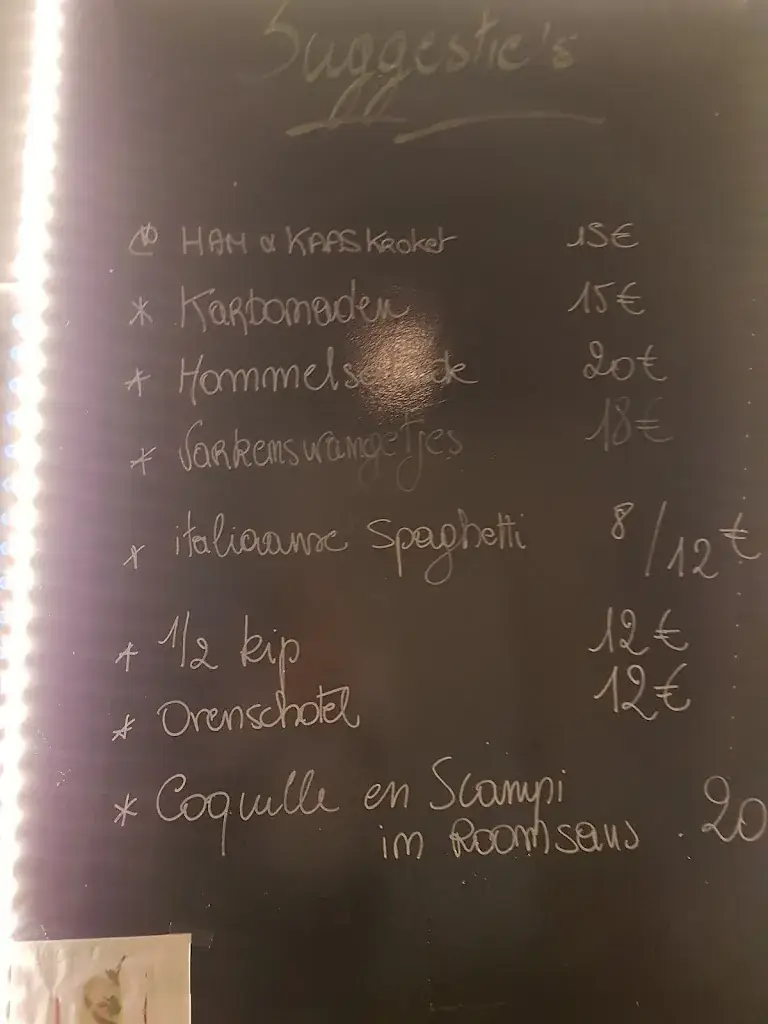 Suggestie's
HAM & KAASKROKET 15€
* Karbonaden 15€
* 20€
* Varkenswangetjes 18€
* italiaanse Spaghetti 8/12€
* 1/2 kip 12€
* Ovenschotel 12€
* Coquille en Scampi
in Roomsaus . 20